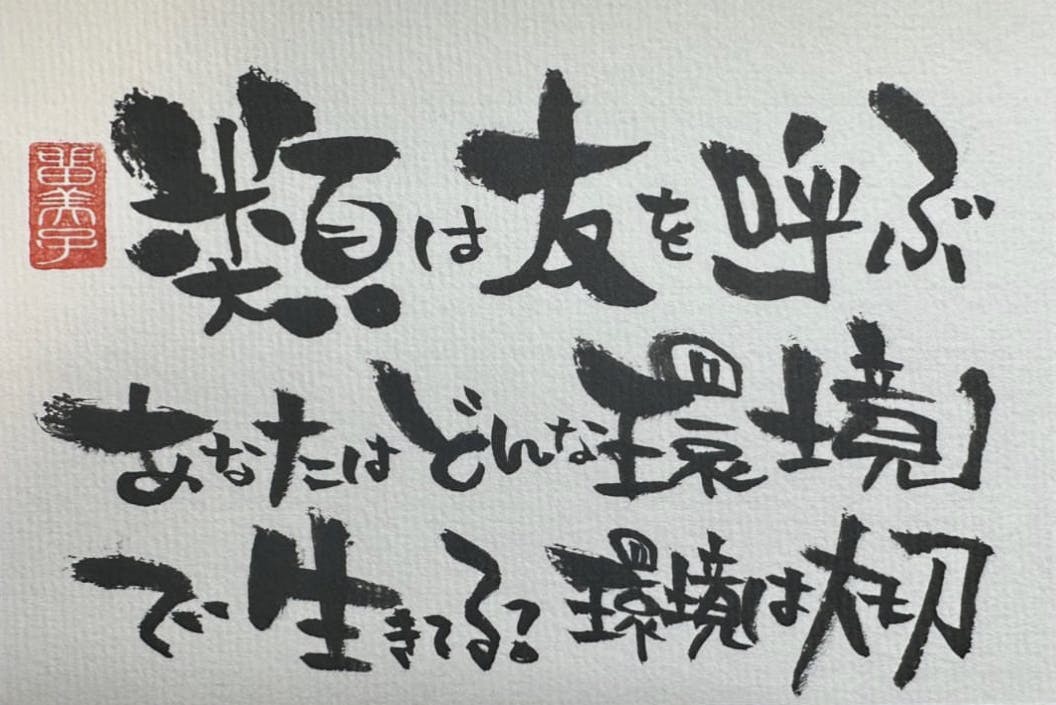 類は友を呼ぶ
あなたはどんな環境
で生きてる?環境は大切
留美子